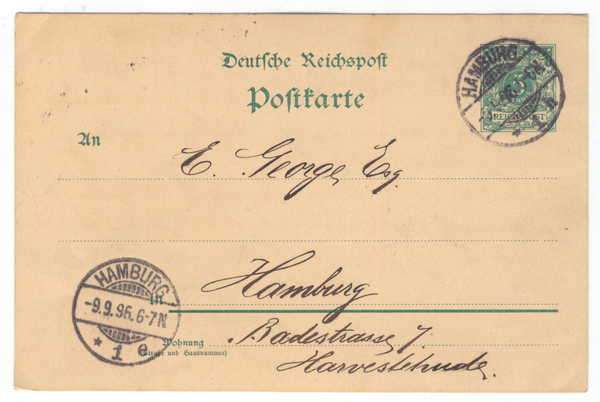 Deutsche Reichspost
Postkarte
HAMBURG
5
REICHSPOST
An
E. George, Esq.
Hamburg
in
HAMBURG
-9.9.96.6-7N
* 1 e
Wohnung
(Straße und Hausnummer)
Badestrasse 7.
Harvestehude.